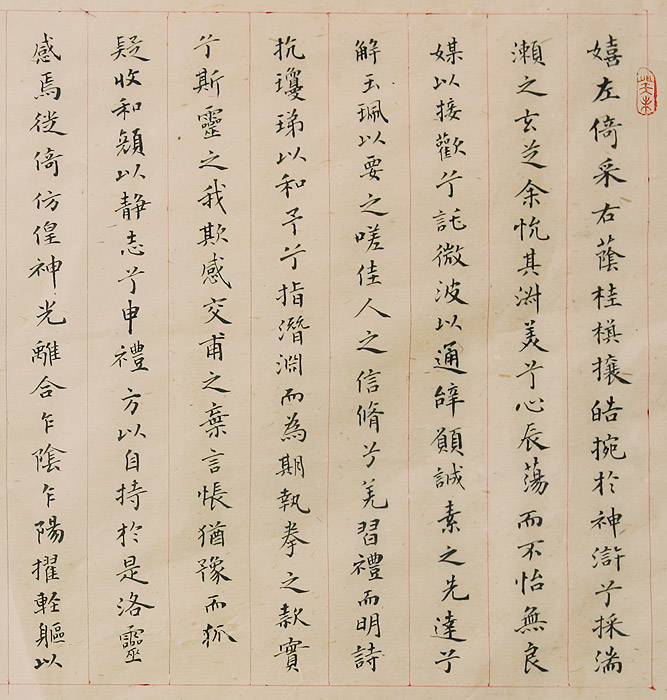 癸未
嬉左倚采右蔭桂槙攘皓捥於神滸兮採湍
瀨之玄芝余悅其淑美兮心辰蕩而不怡無良
媒以接歡兮託微波以通辭願誠素之先達兮
解玉珮以要之嗟佳人之信脩兮羌習禮而明詩
抗瓊珶以和予兮指潛淵而為期執拳之款實
兮斯靈之我欺感交甫之棄言悵猶豫而狐
疑收和顏以静志兮申禮方以自持於是洛靈
感焉徙倚仿偟神光離合乍陰乍陽擢輕軀以